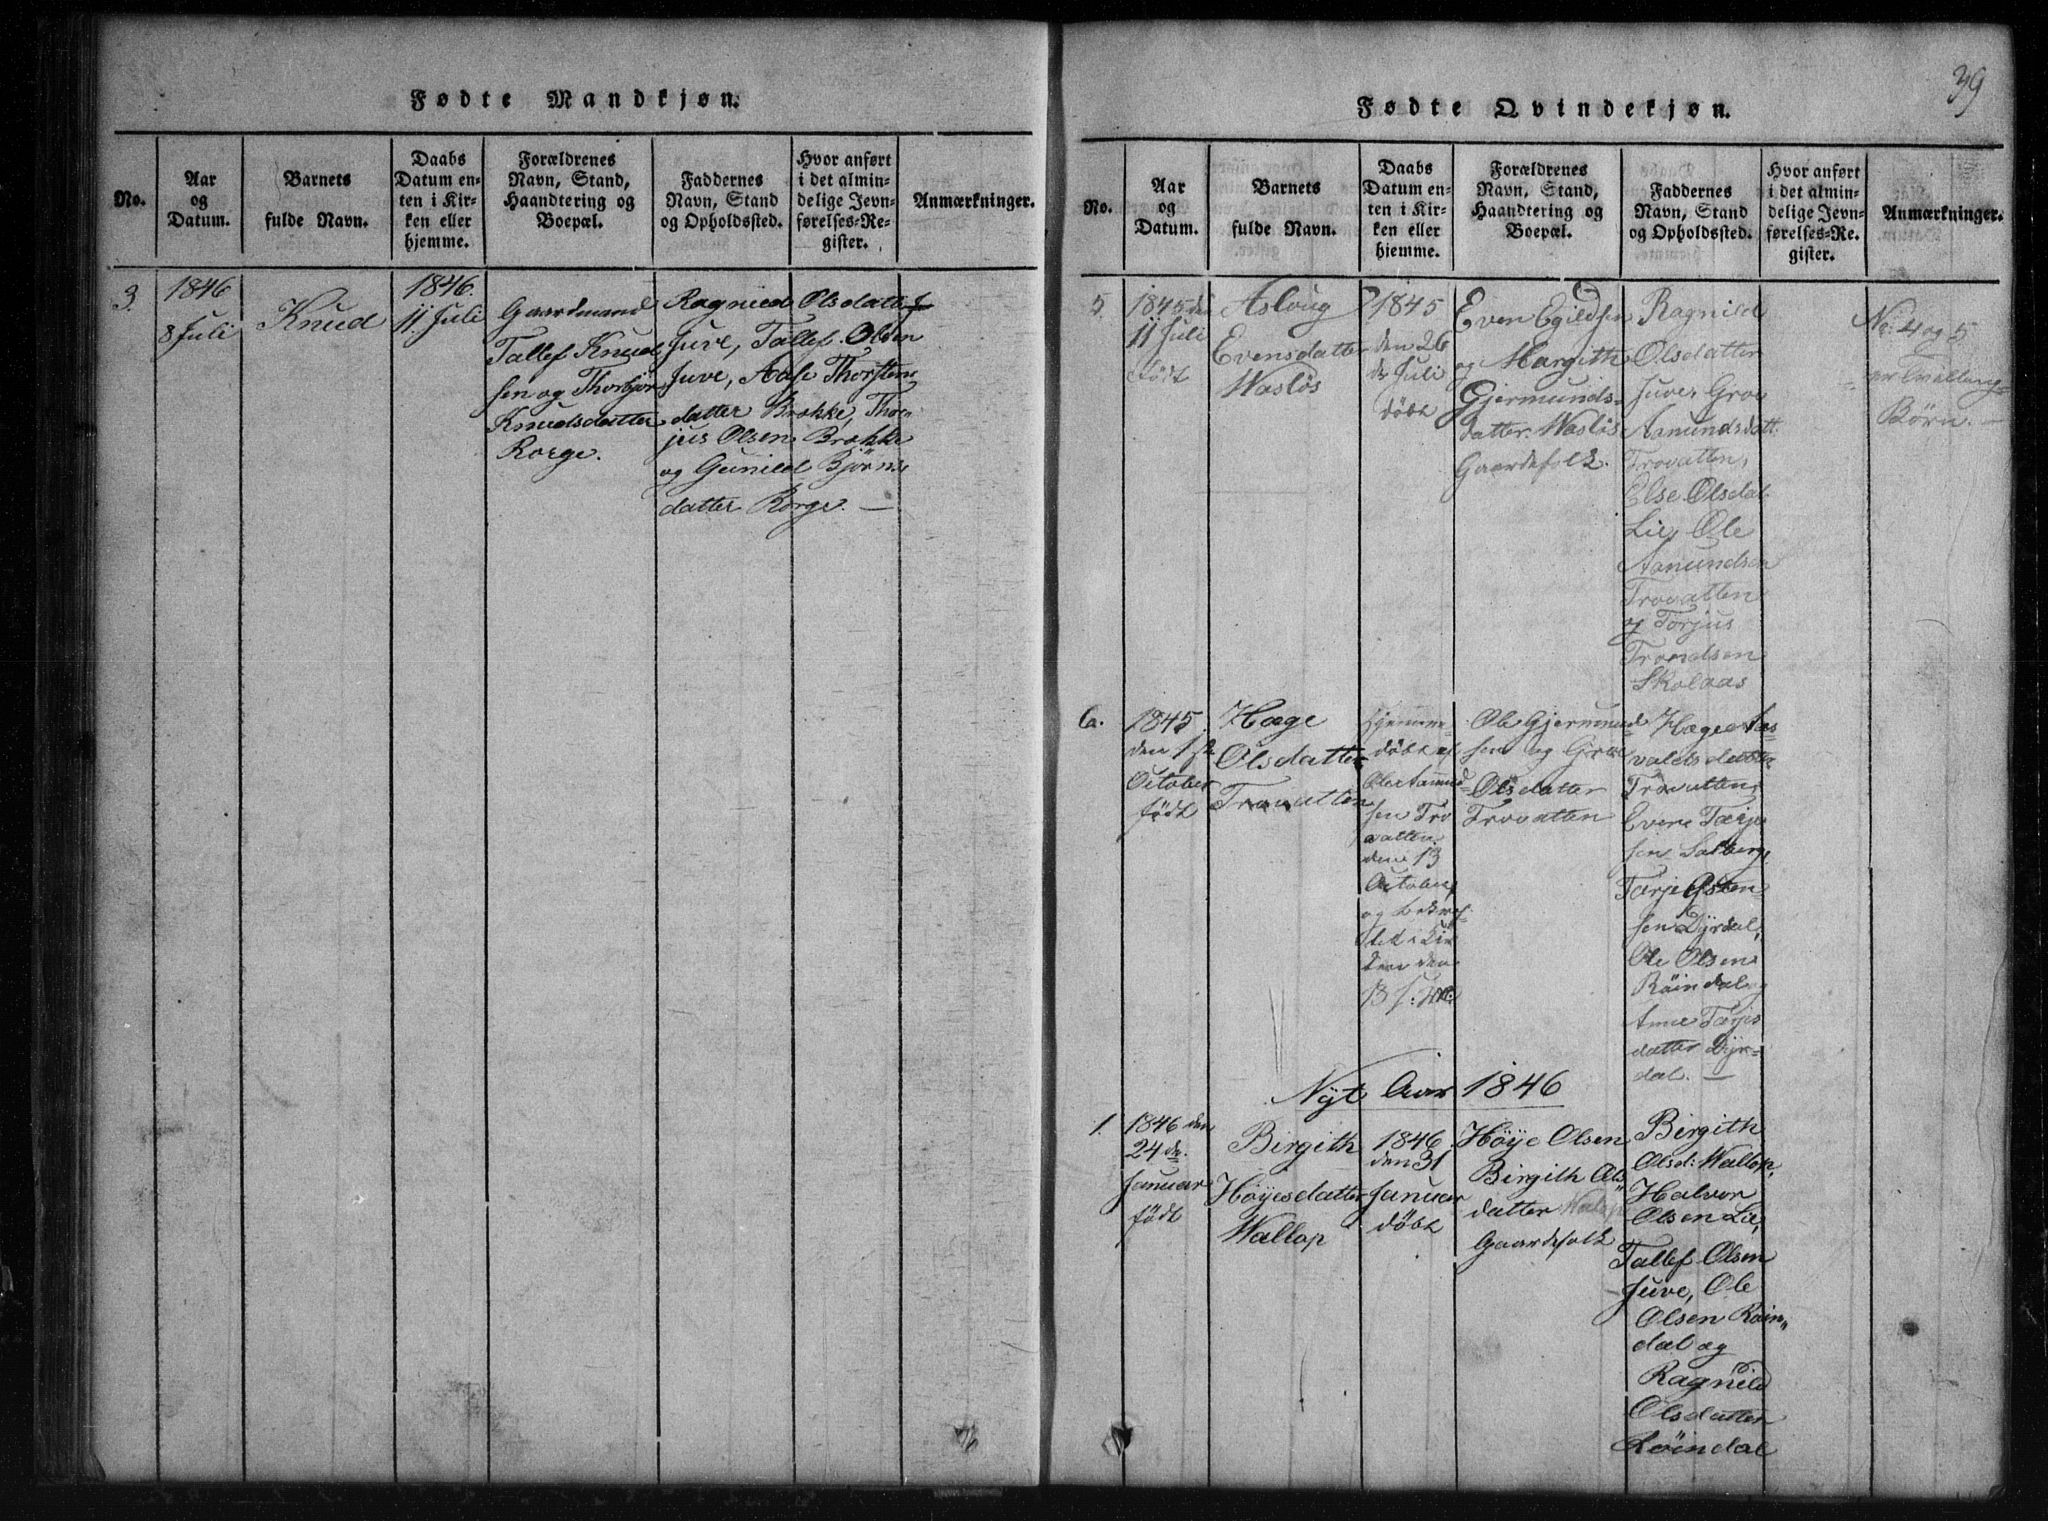 39
Fødte Mandkjøn.
No.
Aar
og
Datum.
Barnets
fulde Navn.
Daabs
Datum en-
ten i Kir-
ken eller
hjemme.
Forældrenes
Navn, Stand,
Haandtering og
Boepæl.
Faddernes
Navn, Stand
og Opholdssted.
Hvor anført
i det almin-
delige Jevn-
førelses-Re-
gister.
Anmærkninger.
3.
1846
8 Juli
Knud
1846.
11. Juli
Gaardmand
Tallef Knud
sen og Thorbjør
Knudsdatter
Rorge.
Ragnild Olsdatter
Juve, Tallef Olsen
Juve, Aase Thorstens
datter Brokke, Thor
jus Olsen Brokke
og Gunild Bjørns
datter Rorge. —
Fødte Qvindekjøn.
No.
Aar
og
Datum.
Barnets
fulde Navn.
Daabs
Datum en-
ten i Kir-
ken eller
hjemme.
Forældrenes
Navn, Stand,
Haandtering og
Boepæl.
Faddernes
Navn, Stand
og Opholdssted.
Hvor anført
i det almin-
delige Jevn-
førelses-Re-
gister.
Anmærkninger.
5.
1845 den
11 Juli
født
Asloug
Evensdatter
Wasløs
1845
den 26
de Juli
døbt
Even Egildsen
og Margith
Gjermunds-
datter Wasløs
Gaardefolk.
Ragnild
Olsdatter
Juve, Groe
Aanundsdatt.
Trovatten,
Else Olsdat
Lie, Ole
Aanundsen
Trovatten
og Torjus
Trondsen
Skolaas
No: 4 og 5
er Tvilling-
Børn. —
6.
1845
den 1ste
October
født
Hæge
Olsdatter
Trovatten
Hjemme
døbt af
Ole Aanund
sen Tro
vatten
den 13
October
og bekræf-
tet i Kir
ken den
13 s: M:
Ole Gjermund
sen og Groe
Olsdatter
Trovatten
Hæge Aas
valdsdatter
Trovatten,
Even Tarje
sen Solberg,
Tarje Østen
sen Dyrdal,
Ole Olsen
Røindal og
Anne Tarjes
datter Dyr-
dal. —
Nyt Aar 1846
1.
1846 den
24 de
Januar
født
Birgith
Høyesdatter
Wallop
1846
den 31
Januar
døbt
Høye Olsen
Birgith Ols
datter Wallop
Gaardefolk
Birgith
Olsd: Wallop,
Halvor
Olsen Lie,
Tallef Olsen
Juve, Ole
Olsen Røin"
dal og
Ragnild
Olsdatter
Røindal